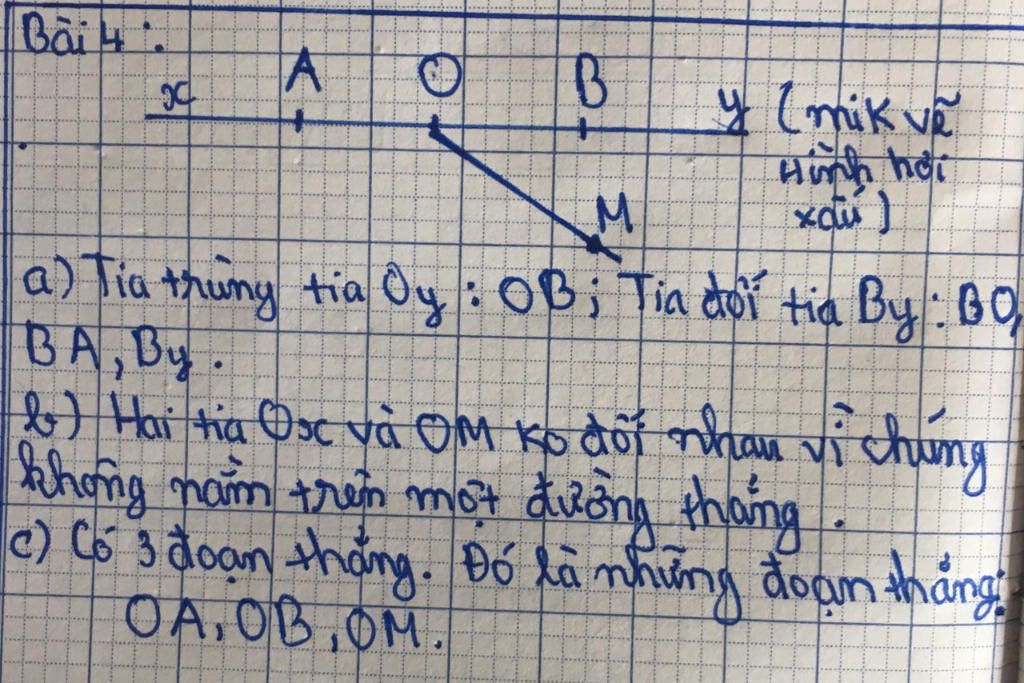 Bài 4 :
A O B
x y (mik vẽ
Hình hơi
xấu)
M
a) Tia trùng tia Oy : OB; Tia đối tia By : BO,
BA, By .
b) Hai tia Ox và OM ko đối nhau vì chúng
không nằm trên một đường thẳng .
c) Có 3 đoạn thẳng. Đó là những đoạn thẳng:
OA, OB, OM.